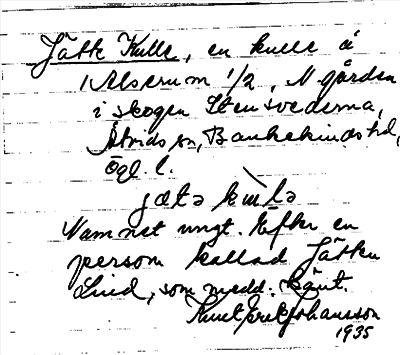 Jätte Kulle, en kulle å
Alserum 1/2, N gården
i skogen Stensvederna,
Åtvids sn, Bankekinds hd,
Ögl. l.
jæta kula
Namnet ungt. Efter en
person kallad Jätten
Lind, som medd. känt.
Knut Erik Johansson
1935